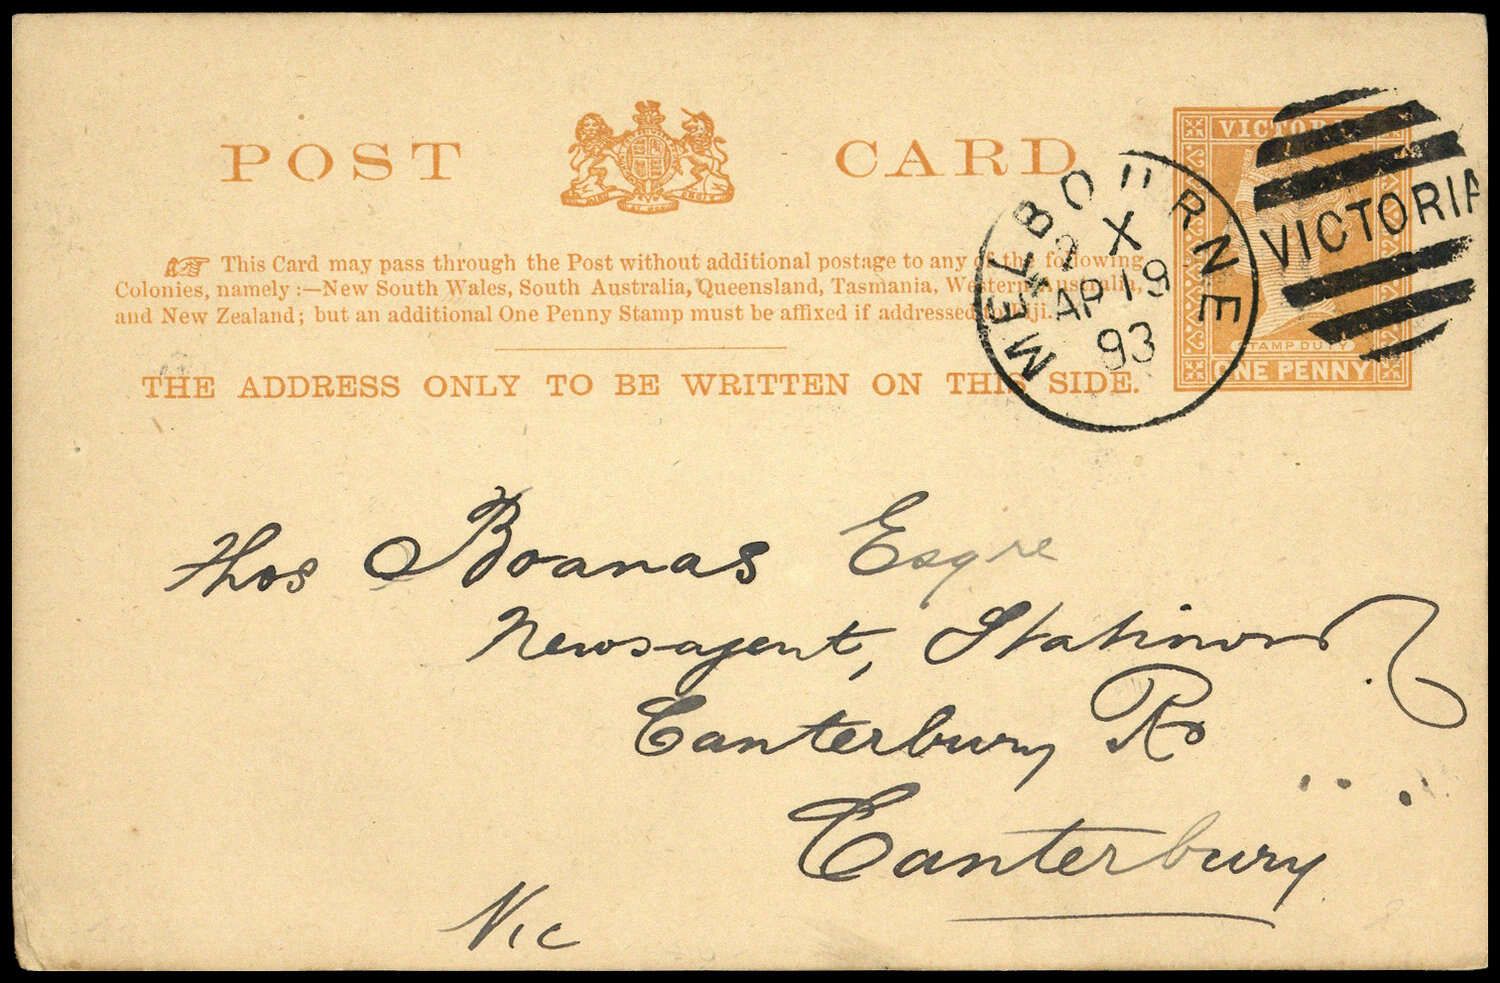 POST CARD
VICTORIA
This Card may pass through the Post without additional postage to any of the following
Colonies, namely:—New South Wales, South Australia, Queensland, Tasmania, Western Australia,
and New Zealand; but an additional One Penny Stamp must be affixed if addressed to Fiji.
THE ADDRESS ONLY TO BE WRITTEN ON THIS SIDE.
STAMP DUTY
ONE PENNY
MELBOURNE
X
AP 19
93
VICTORIA
Thos Boanas Esqre
Newsagent, Stationer
Canterbury Rd
Canterbury
Vic